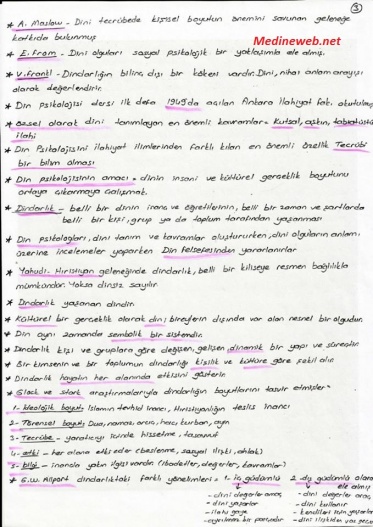 3
* A. Maslow - Dini tecrübede kişisel boyutun önemini savunan geleneğe
katkıda bulunmuş
Medineweb.net
* E. From - Dini olguları sosyal psikolojik bir yaklaşımla ele almış.
* V. Frankl - Dindarlığın bilinç dışı bir kökeni vardır. Dini, nihai anlam arayışı
olarak değerlendirir.
* Din psikolojisi dersi ilk defa 1949'da açılan Ankara ilahiyat fak. okutulmuş
* özsel olarak dini tanımlayan en önemli kavramlar = Kutsal, aşkın, tabiatüstü
ilahi
* Din Psikolojisini ilahiyat ilimlerinden farklı kılan en önemli özellik Tecrübi
bir bilim olması
* Din psikolojisinin amacı = dinin insani ve kültürel gerçeklik boyutunu
ortaya çıkarmaya çalışmak.
* Dindarlık - belli bir dinin inanç ve öğretilerinin, belli bir zaman ve şartlarda
belli bir kişi, grup ya da toplum tarafından yaşanması
* Din psikologları, dini tanım ve kavramlar oluştururken, dini olguların anlamı
üzerine incelemeler yaparken Din felsefesinden yararlanırlar
* Yahudi-Hıristiyan geleneğinde dindarlık, belli bir kiliseye resmen bağlılıkla
mümkündür. Yoksa dinsiz sayılır.
* Dindarlık yaşanan dindir.
* Kültürel bir gerçeklik olarak din; bireylerin dışında var olan nesnel bir olgudur.
* Din aynı zamanda sembolik bir sistemdir.
* Dindarlık kişi ve gruplara göre değişen, gelişen, dinamik bir yapı ve süreçtir.
* Bir kimsenin ve bir toplumun dindarlığı kişilik ve kültüre göre şekil alır.
* Dindarlık hayatın her alanında etkisini gösterir.
* Glock ve Stark araştırmalarıyla dindarlığın boyutlarını tasvir etmişler
1- ideolojik boyut: İslamın tevhid inancı, Hıristiyanlığın teslis inancı
2- Törensel boyut: Dua, namaz, oruç, hacı, kurban, ayin
3- Tecrübe - yaratıcıyı içinde hissetme, tasavvuf
4- etki - her alana etki eder (beslenme, sosyal ilişki, ahlak)
5- bilgi - inançla yakın ilgisi vardır (ibadetler, değerler, kavramlar)
* G.W. Allport dindarlıktaki farklı yönelimleri = 1. iç güdümlü 2. dış güdümlü olarak
ele almış
- dini değerler amaç - dini değerler araç
- dini yaşarlar - dini kullanır